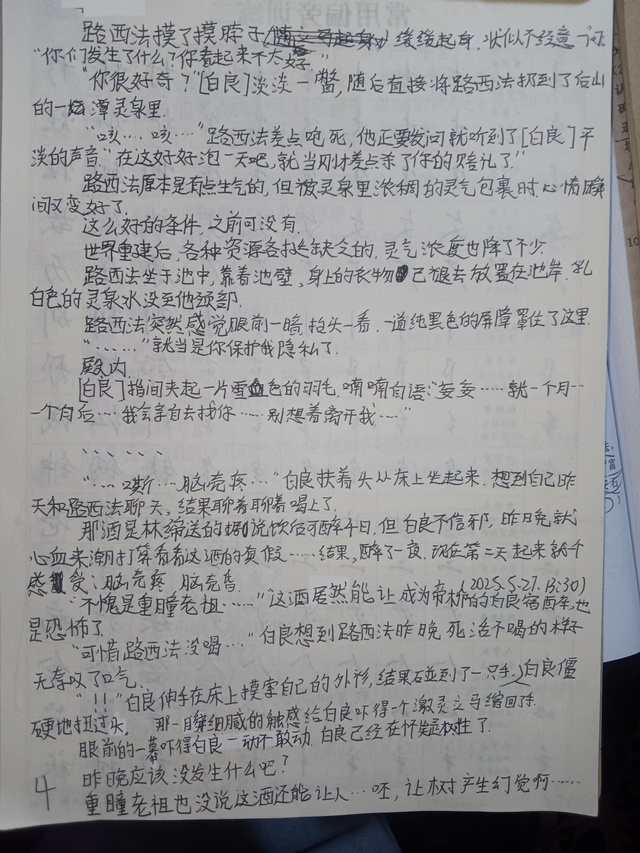 路西法摸了摸脖子(随立马起身)缓缓起身,状似不经意问
“你们发生了什么?你看起来不太好。”
“你很好奇?”[白良]淡淡一瞥,随后直接将路西法扔到了后山
的一潭灵泉里.
“咳……咳……”路西法差点呛死,他正要发问就听到了[白良]平
淡的声音.“在这好好泡一天吧,就当刚才差点杀了你的赔礼了”
路西法原本是有点生气的,但被灵泉里浓稠的灵气包裹时,心情瞬
间又变好了.
这么好的条件,之前可没有.
世界重建后,各种资源各找缺乏的,灵气浓度也降了不少.
路西法坐于池中,靠着池壁,身上的衣物已褪去放置在池岸.乳
白色的灵泉水没至他颈部.
路西法突然感觉眼前一暗,抬头一看.一道纯黑色的屏障罩住了这里.
“……”就当是你保护我隐私了.
殿内.
[白良]指间夹起一片雪血色的羽毛,喃喃自语:“妄妄……就一个月…
一个月后……我会亲自去找你……别想着离开我…”
、、、、、、
“…嘶…脑壳疼…”白良扶着头从床上坐起来,想到自己昨
天和路西法聊天,结果聊着聊着喝上了.
那酒是林缔送的,据说饮后可醉千日,但白良不信邪,昨日晚就
心血来潮打算看看这酒的真假……结果,醉了一夜.现在第二天起来就个
感受:脑壳疼 脑壳昏
(2025.5.27.13:30)
“不愧是重瞳老祖……”这酒居然能让成为帝桥的白良宿醉,也
是恐怖了.
“可惜路西法没喝…”白良想到路西法昨晚死活不喝的样子
无奈叹了口气.
“!!”白良伸手在床上摸索自己的外衫,结果碰到了一只手,白良僵
硬地扭过头. 那一瞬细腻的触感给白良吓得一个激灵立马缩回手.
眼前的一幕吓得白良一动不敢动.白良已经在怀疑树性了.
昨晚应该没发生什么吧?
重瞳老祖也没说这酒还能让人…呸,让树产生幻觉啊……
4